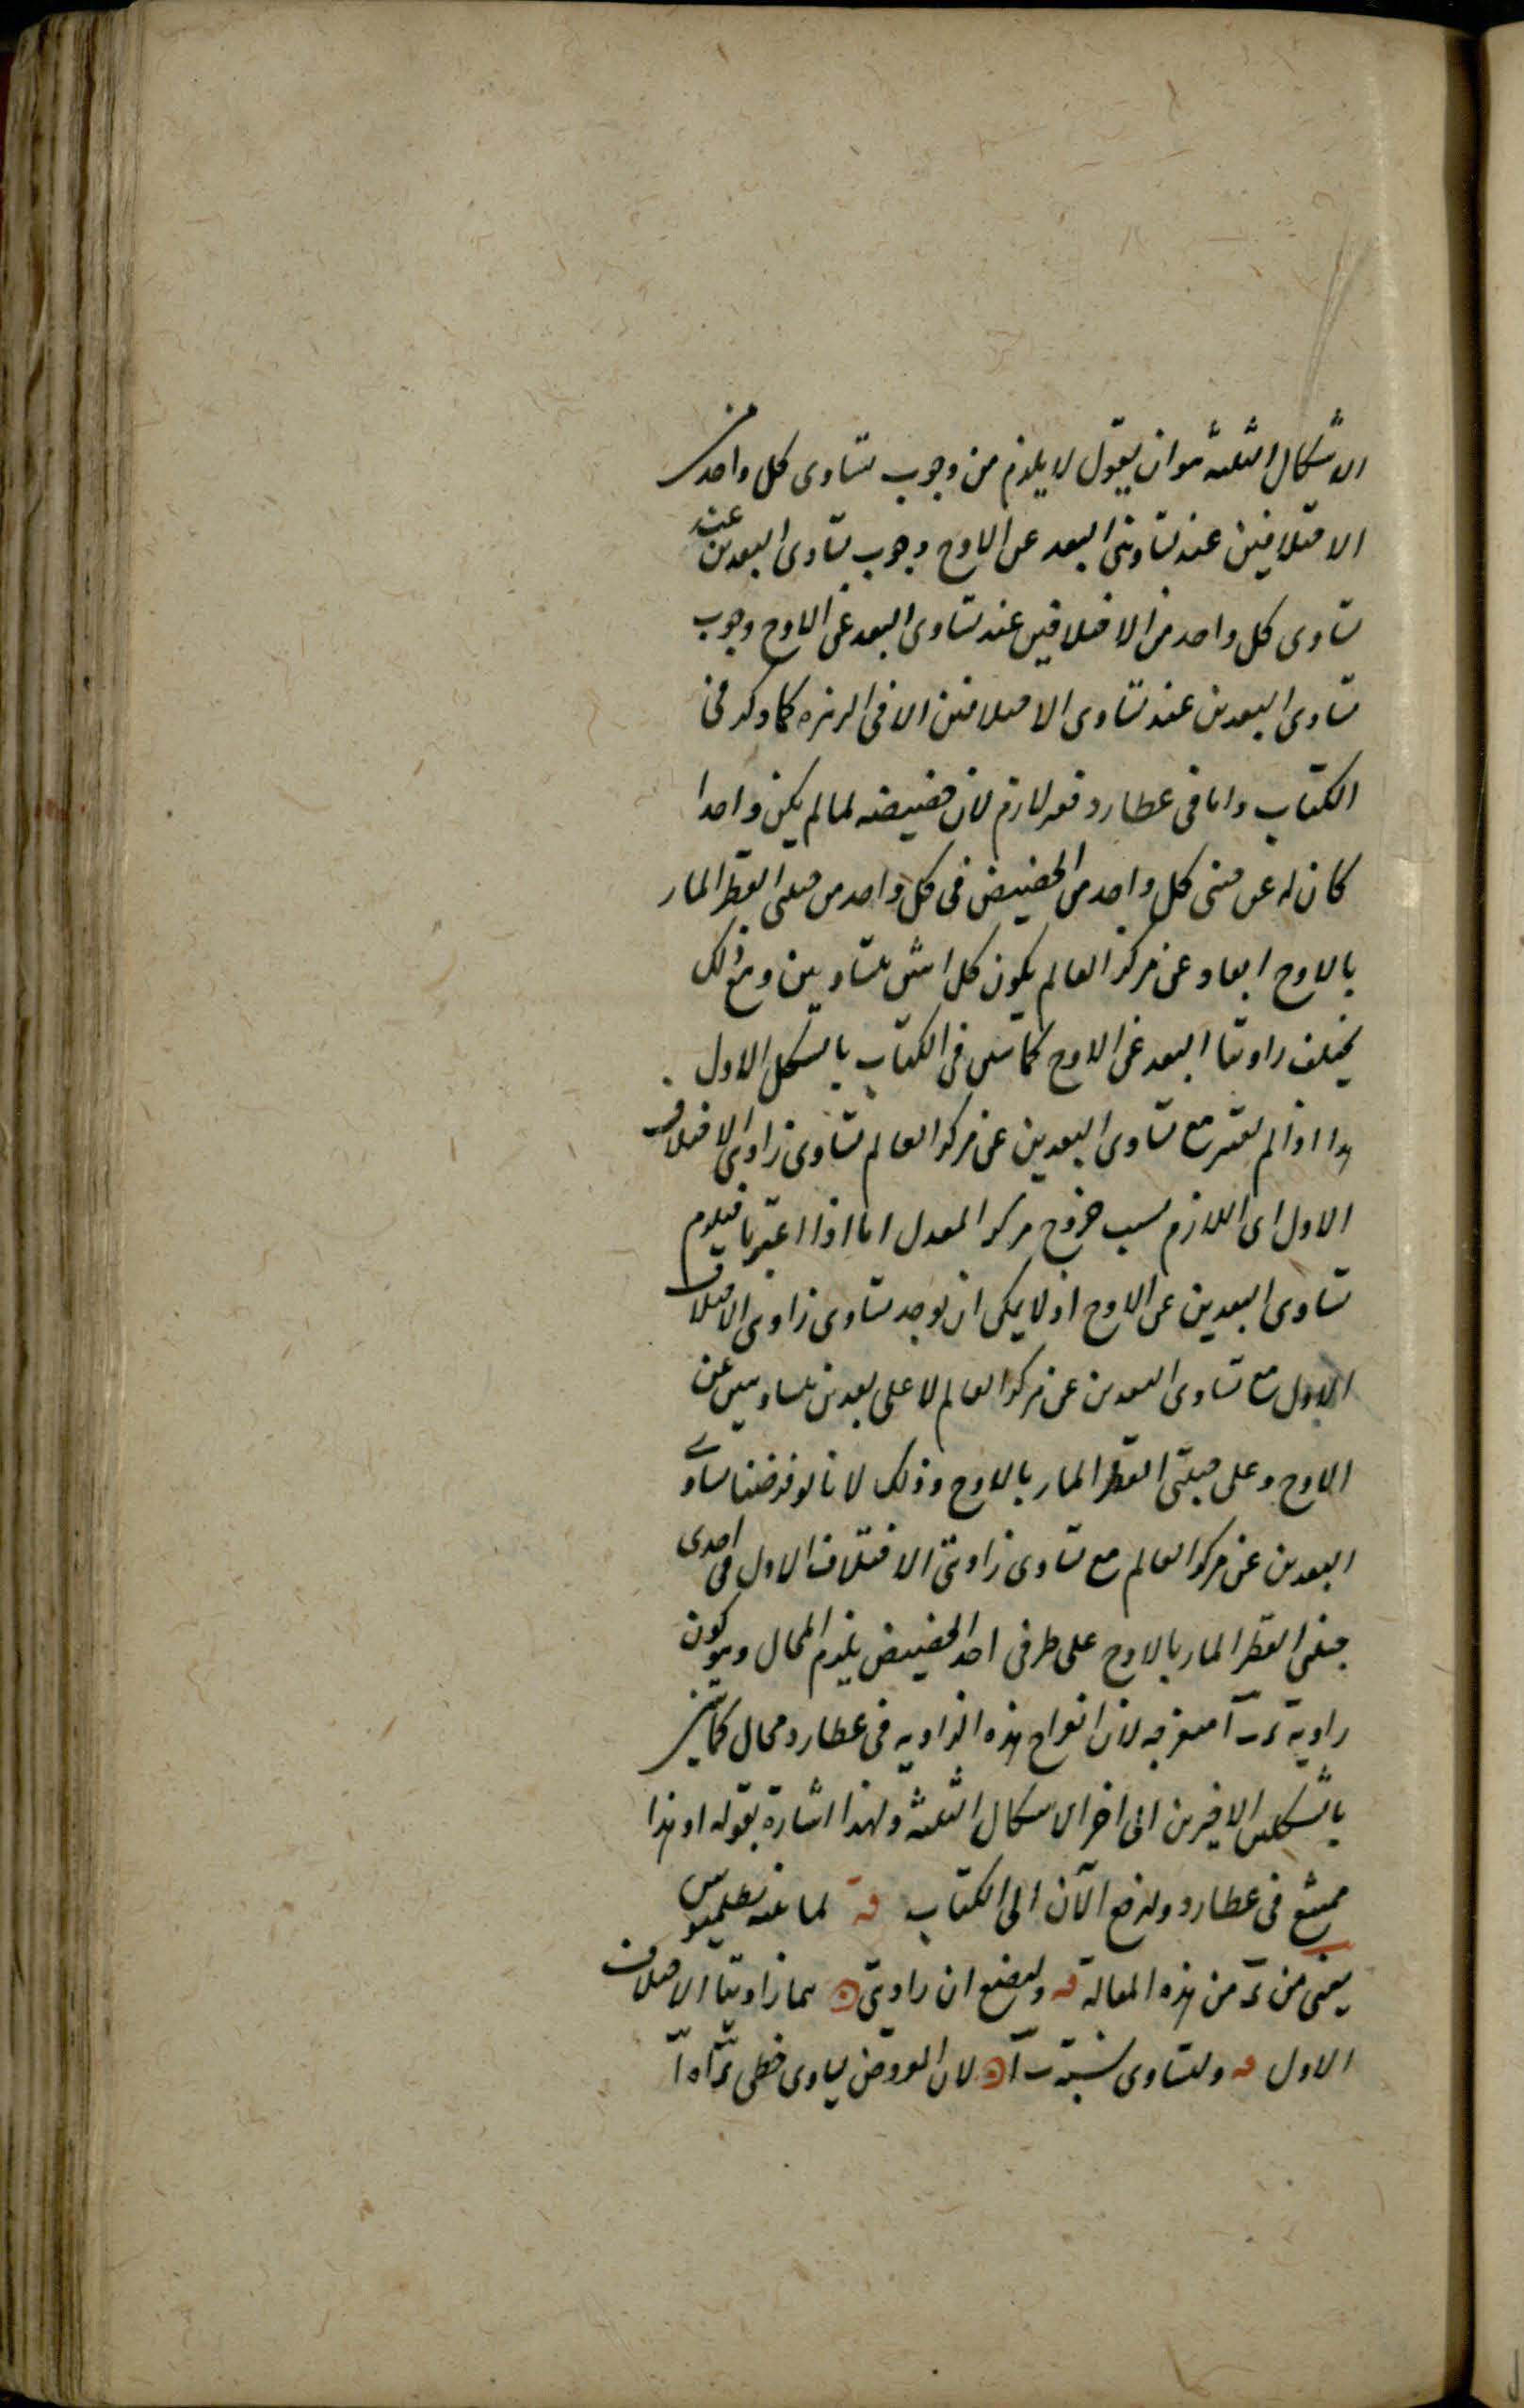 الاشكال الثلثة هو ان يقول لا يلزم من وجوب تساوى كل واحد من
الاختلافين عند تساوى البعد عن الاوج وجوب تساوى البعدين عند
تساوى كل واحد من الاختلافين عند تساوى البعد عن الاوج وجوب
تساوى البعدين عند تساوى الاختلافين الا فى الزهره كما ذكر فى
الكتاب واما فى عطارد فغير لازم لان حضيضه لما لم يكن واحدا
كان له عن جنبتى كل واحد من الحضيض فى كل واحد من جهتى القطر المار
بالاوج ابعاد عن مركز العالم يكون كل اثنين متساويين ومع ذلك
يختلف زاويتا البعد عن الاوج كما تبين فى الكتاب بالشكل الاول
هذا اذا لم يعتبر مع تساوى البعدين عن مركز العالم تساوى زاويتى الاختلاف
الاول اى اللازم بسبب خروج مركز المعدل اما اذا اعتبرنا فيلزم
تساوى البعدين عن الاوج اذ لا يمكن ان يوجد تساوى زاويتى الاختلاف
الاول مع تساوى البعدين عن مركز العالم لا على بعدين متساويين عن
الاوج وعلى جهتى القطر المار بالاوج وذلك لانا لو فرضنا تساوى
البعدين عن مركز العالم مع تساوى زاويتى الاختلاف الاول فى احدى
جهتى القطر المار بالاوج على طرفى احد الحضيض يلزم المحال وهو كون
زاوية منفرجه لان انفراج هذه الزاويه فى عطارد محال كما تبين
بالشكلين الاخيرين الى اخر الاشكال الثلثة ولهذا اشارة بقوله او هذا
ممتنع فى عطارد ولنرجع الآن الى الكتاب قه لما بينه بطلميوس
يعنى من من هذه المقالة قه وليضع ان زاويتى هما زاويتا الاختلاف
الاول قه ولتساوى نسبة لان العروض يساوى خطى